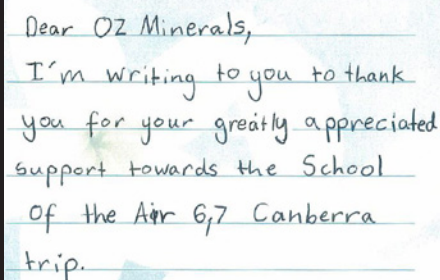 Dear OZ Minerals,
I'm writing to you to thank
you for your greatly appreciated
support towards the School
Of the Air 6,7 Canberra
trip.